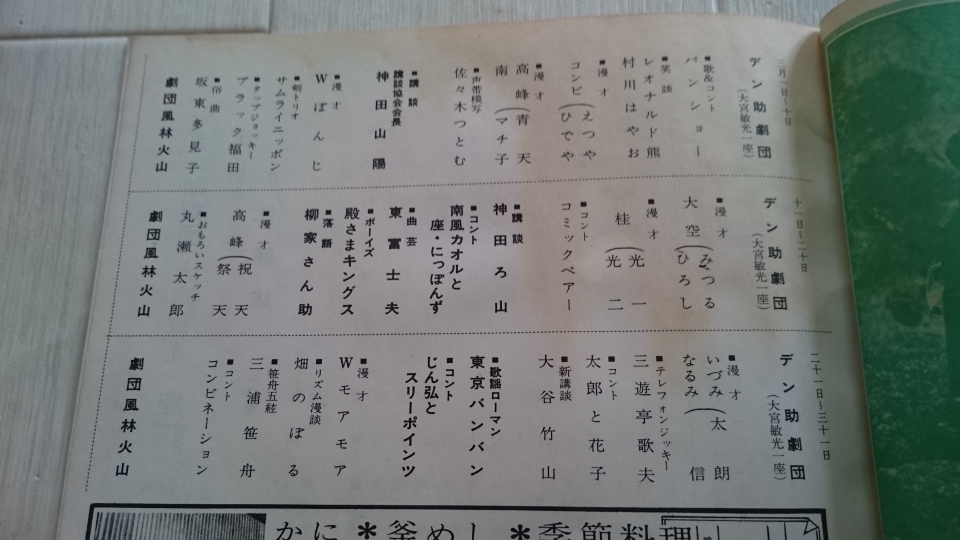 三月一日〜十日
デン助劇団
(大宮敏光一座)
■歌&コント
バンショー
■笑談
レオナルド熊
村川はやお
■漫才
コンビ(えつや
ひでや
■漫才
高峰(青天
南(マチ子
■声帯模写
佐々木つとむ
■講談
講談協会会長
神田山陽
■漫才
Wぽんじ
■剣トリオ
サムライニッポン
■タップジョッキー
ブラック福田
■俗曲
坂東多見子
劇団風林火山
十一日〜二十日
デン助劇団
(大宮敏光一座)
■漫才
大空(みつる
ひろし
■漫才
桂(光一
光二
■コント
コミックペアー
■講談
神田ろ山
■コント
南風カオルと
座・にっぽんず
■曲芸
東富士夫
■ボーイズ
殿さまキングス
■落語
柳家さん助
■漫才
高峰(祝天
祭天
■おもろいスケッチ
丸瀬太郎
劇団風林火山
二十一日〜三十一日
デン助劇団
(大宮敏光一座)
■漫才
いづみ(太朗
なるみ 信
■テレフォンジッキー
三遊亭歌夫
■コント
太郎と花子
■新講談
大谷竹山
■歌謡ローマン
東京バンバン
■コント
じん弘と
スリーポインツ
■漫才
Wモアモア
■リズム漫談
畑のぼる
■笹舟五絃
三浦笹舟
■コント
コンビネーション
劇団風林火山
かに*釜めし*季節料理